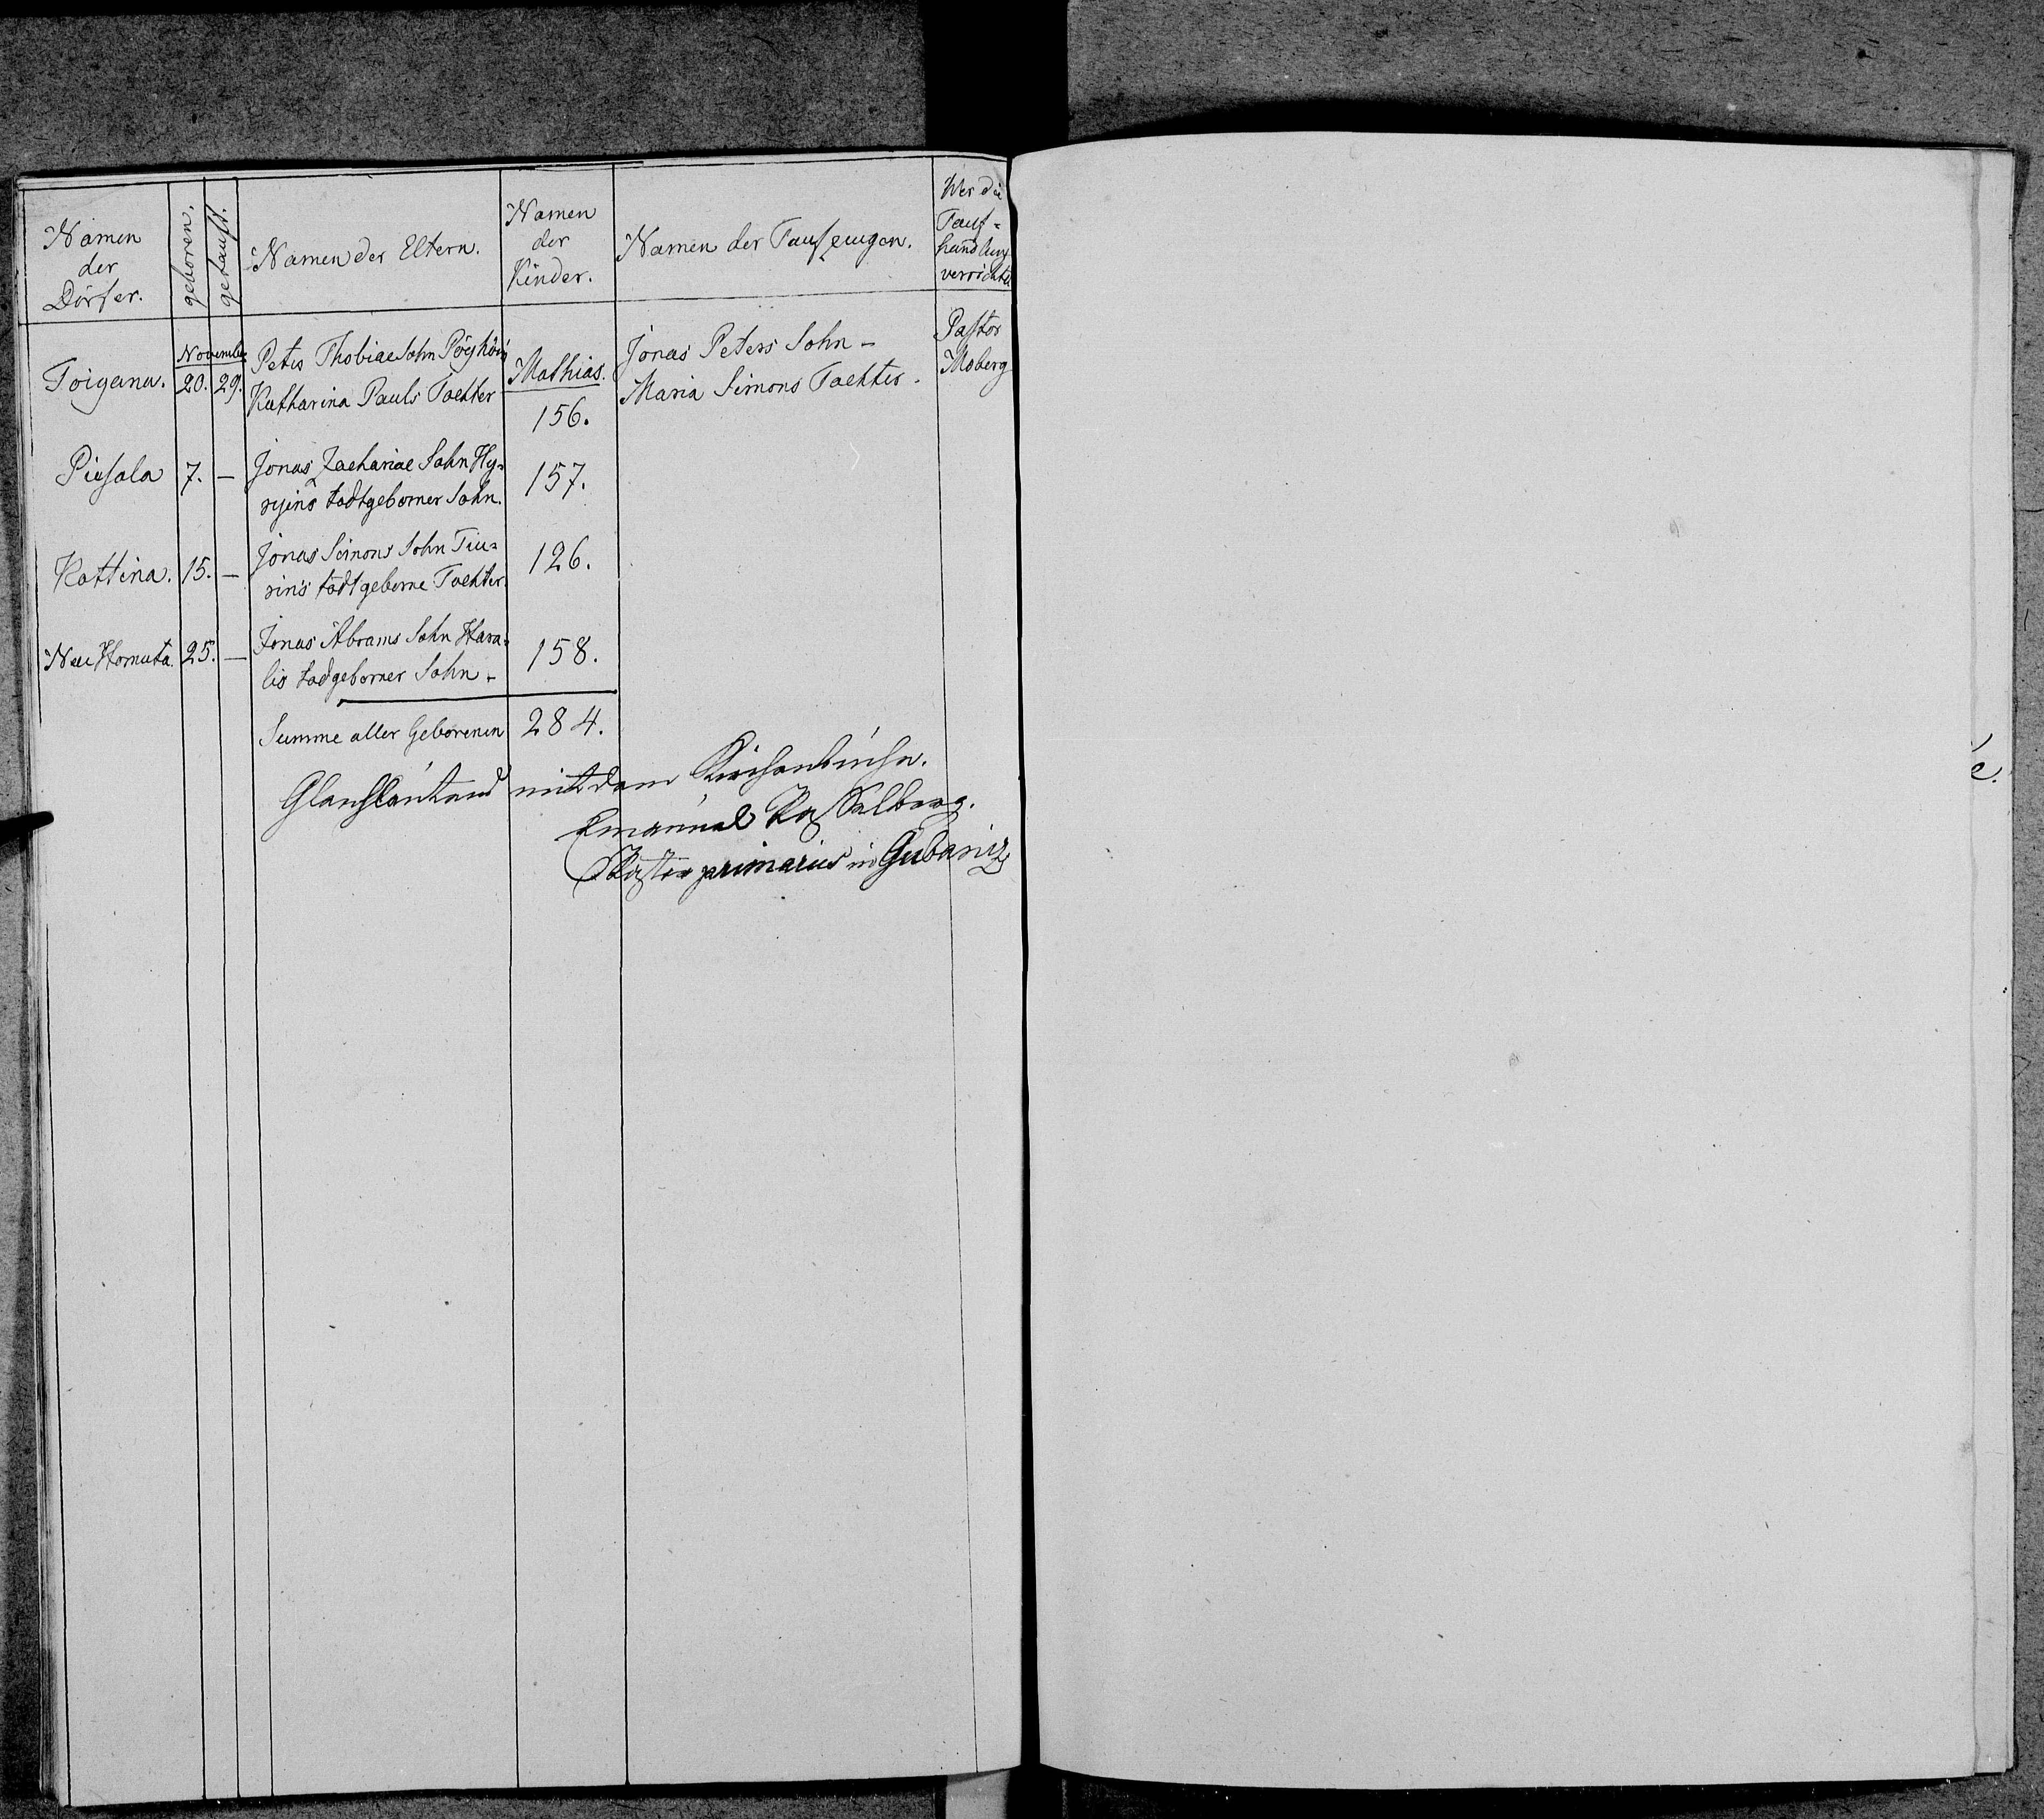 Namen
der
Dörfer.
geboren.
getauft.
Namen der Eltern.
Namen
der
Kinder.
Namen der Taufzeugen.
Wer die
Tauf-
handlung
verrichtet
November
Toigana. 20. 29.
Peter Thobiae Sohn
Katharina Pauls Tochter
Mathias.
156.
Jonas Peters Sohn -
Maria Simons Tochter.
Pastor
Moberg
Piesola 7. —
Jonas Zachariae Sohn Hy-
rynns todtgeborner Sohn.
157.
Kottina. 15. —
Jonas Simons Sohn Tiu-
rins todtgeborne Tochter.
126.
Neu Hornuta. 25. —
Jonas Abrams Sohn Hara-
lis todgeborner Sohn -
158.
Summe aller Geborenen 284.
Gleichlautend mit dem Kirchenbuche.
Emanuel
Pastor primarius in Gubaniz